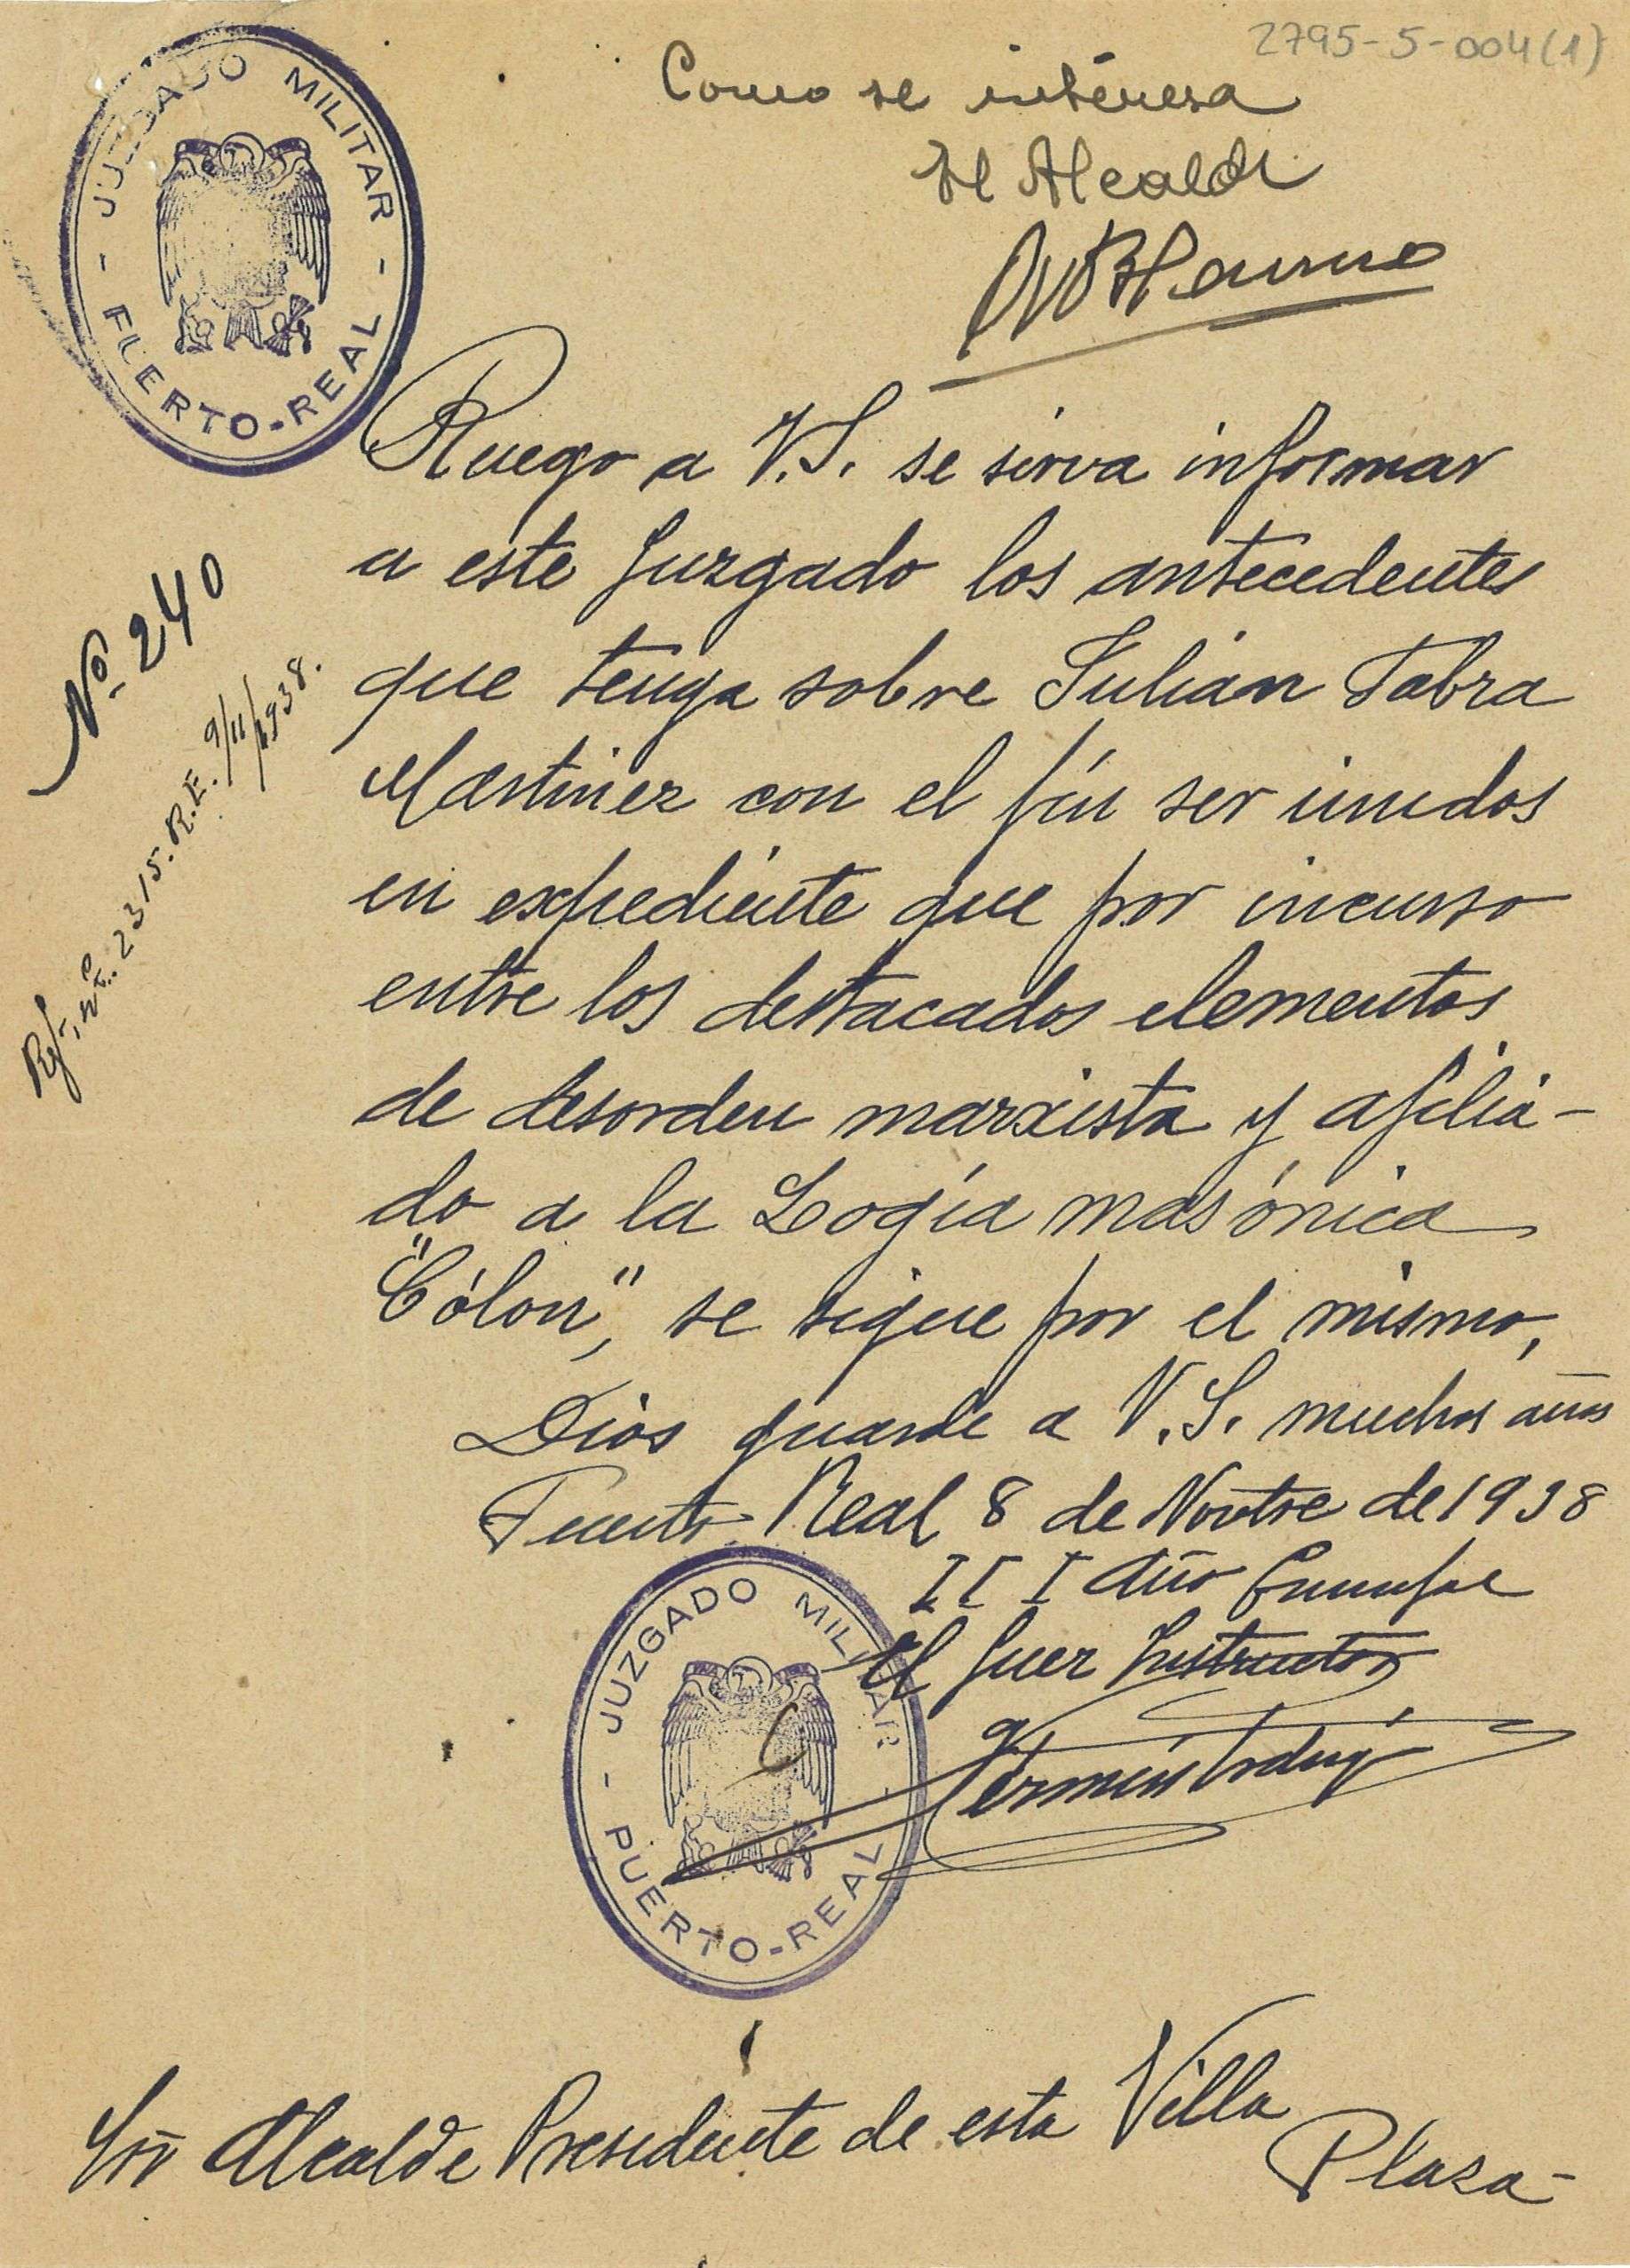 2795-5-004(1)
JUZGADO MILITAR
- PUERTO-REAL -
Como se interesa
El Alcalde
Nº 240
Rfª. nº. 2315. R.E. 9/11/1938.
Ruego a V.S. se sirva informar
a este Juzgado los antecedentes
que tenga sobre Julián Fabra
Martinez con el fín ser unidos
en expediente que por incurso
entre los destacados elementos
de desorden marxista y afilia-
do a la Logía masónica
"Cólon", se sigue por el mismo,
Dios guarde a V.S. muchos años
Puerto Real 8 de Novbre de 1938
III Año Triunfal
El Juez Instructor
Fermín
JUZGADO MILITAR
- PUERTO-REAL -
Sr Alcalde Presidente de esta Villa
Plaza-